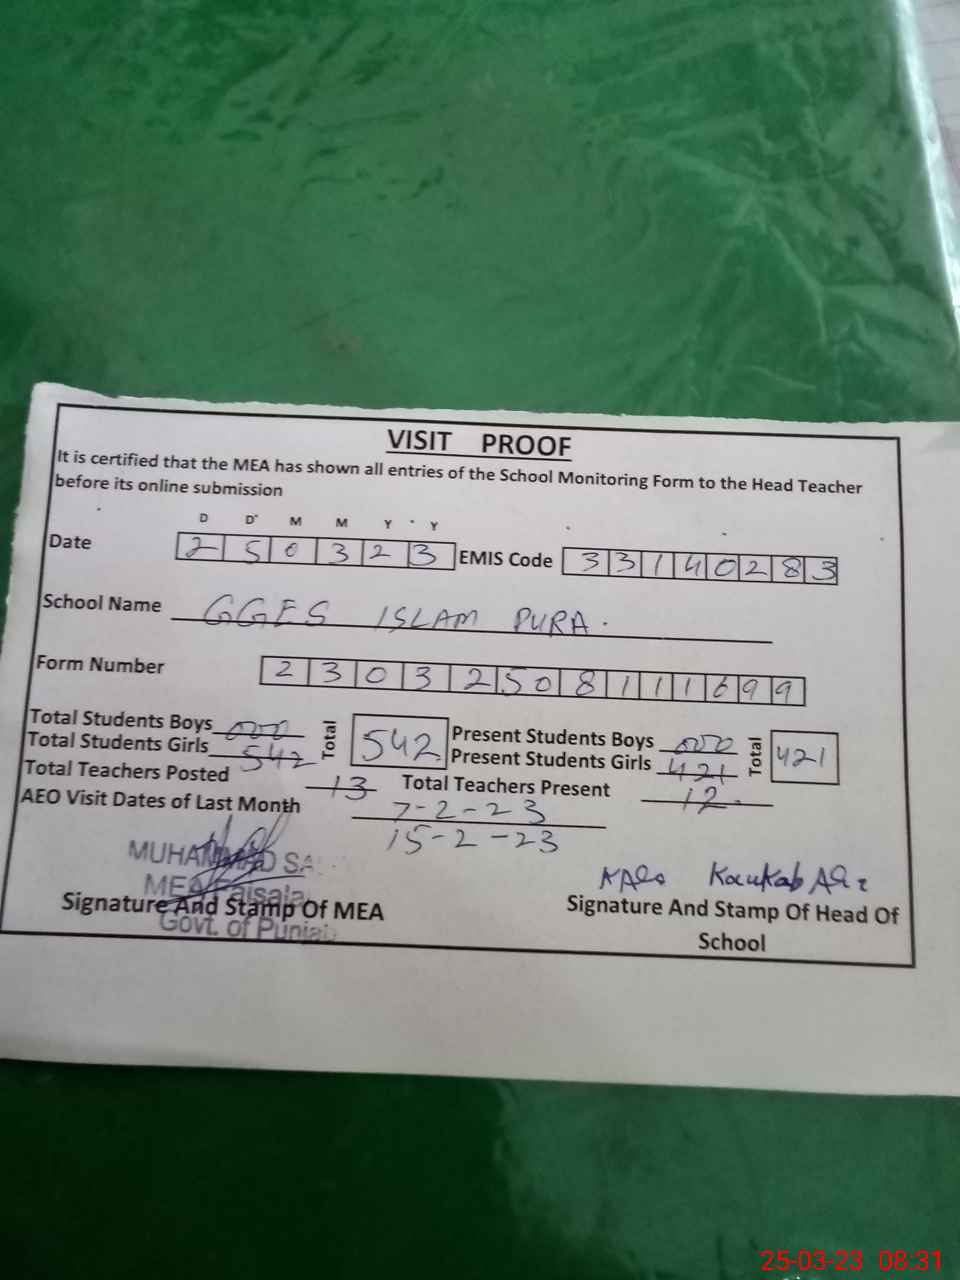 VISIT PROOF
It is certified that the MEA has shown all entries of the School Monitoring Form to the Head Teacher
before its online submission
D D M M Y Y
Date 2 5 0 3 2 3 EMIS Code 3 3 1 4 0 2 8 3
School Name GGES ISLAM PURA.
Form Number 2 3 0 3 2 5 0 8 1 1 1 6 9 9
Total Students Boys 000 Total 542 Present Students Boys 000 Total 421
Total Students Girls 542 Present Students Girls 421
Total Teachers Posted 13 Total Teachers Present 12.
AEO Visit Dates of Last Month 7-2-23
15-2-23
MUHAMMAD SA
MEA Faisala
Govt. of Punjab
Kaukab
Signature And Stamp Of MEA Signature And Stamp Of Head Of
School
25-03-23 08:31